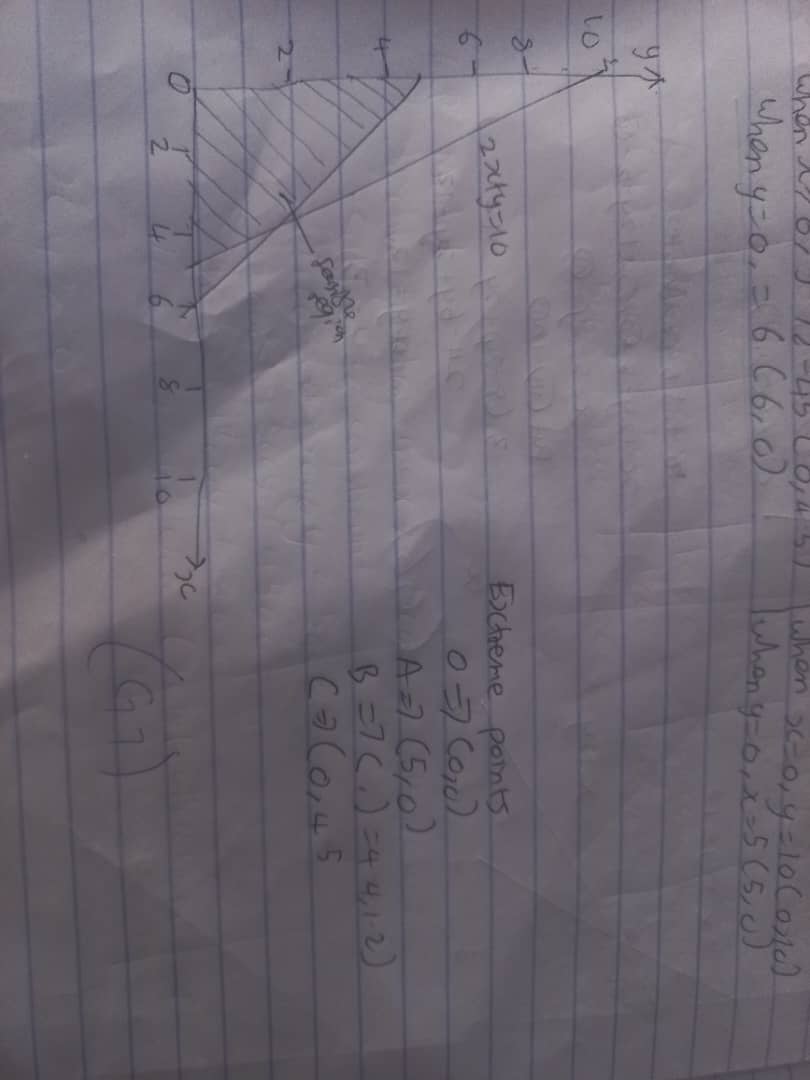 when y=0, = 6 (6,0)
when x=0, y=10(0,10)
when y=0, x=5(5,0)
y
10
8
6
4
2
0
2
4
6
8
10
x
2x+y=10
feasible
region
Extreme points
0 => (0,0)
A => (5,0)
B => (.) = 4 4, 1.2)
C => (0, 4 5